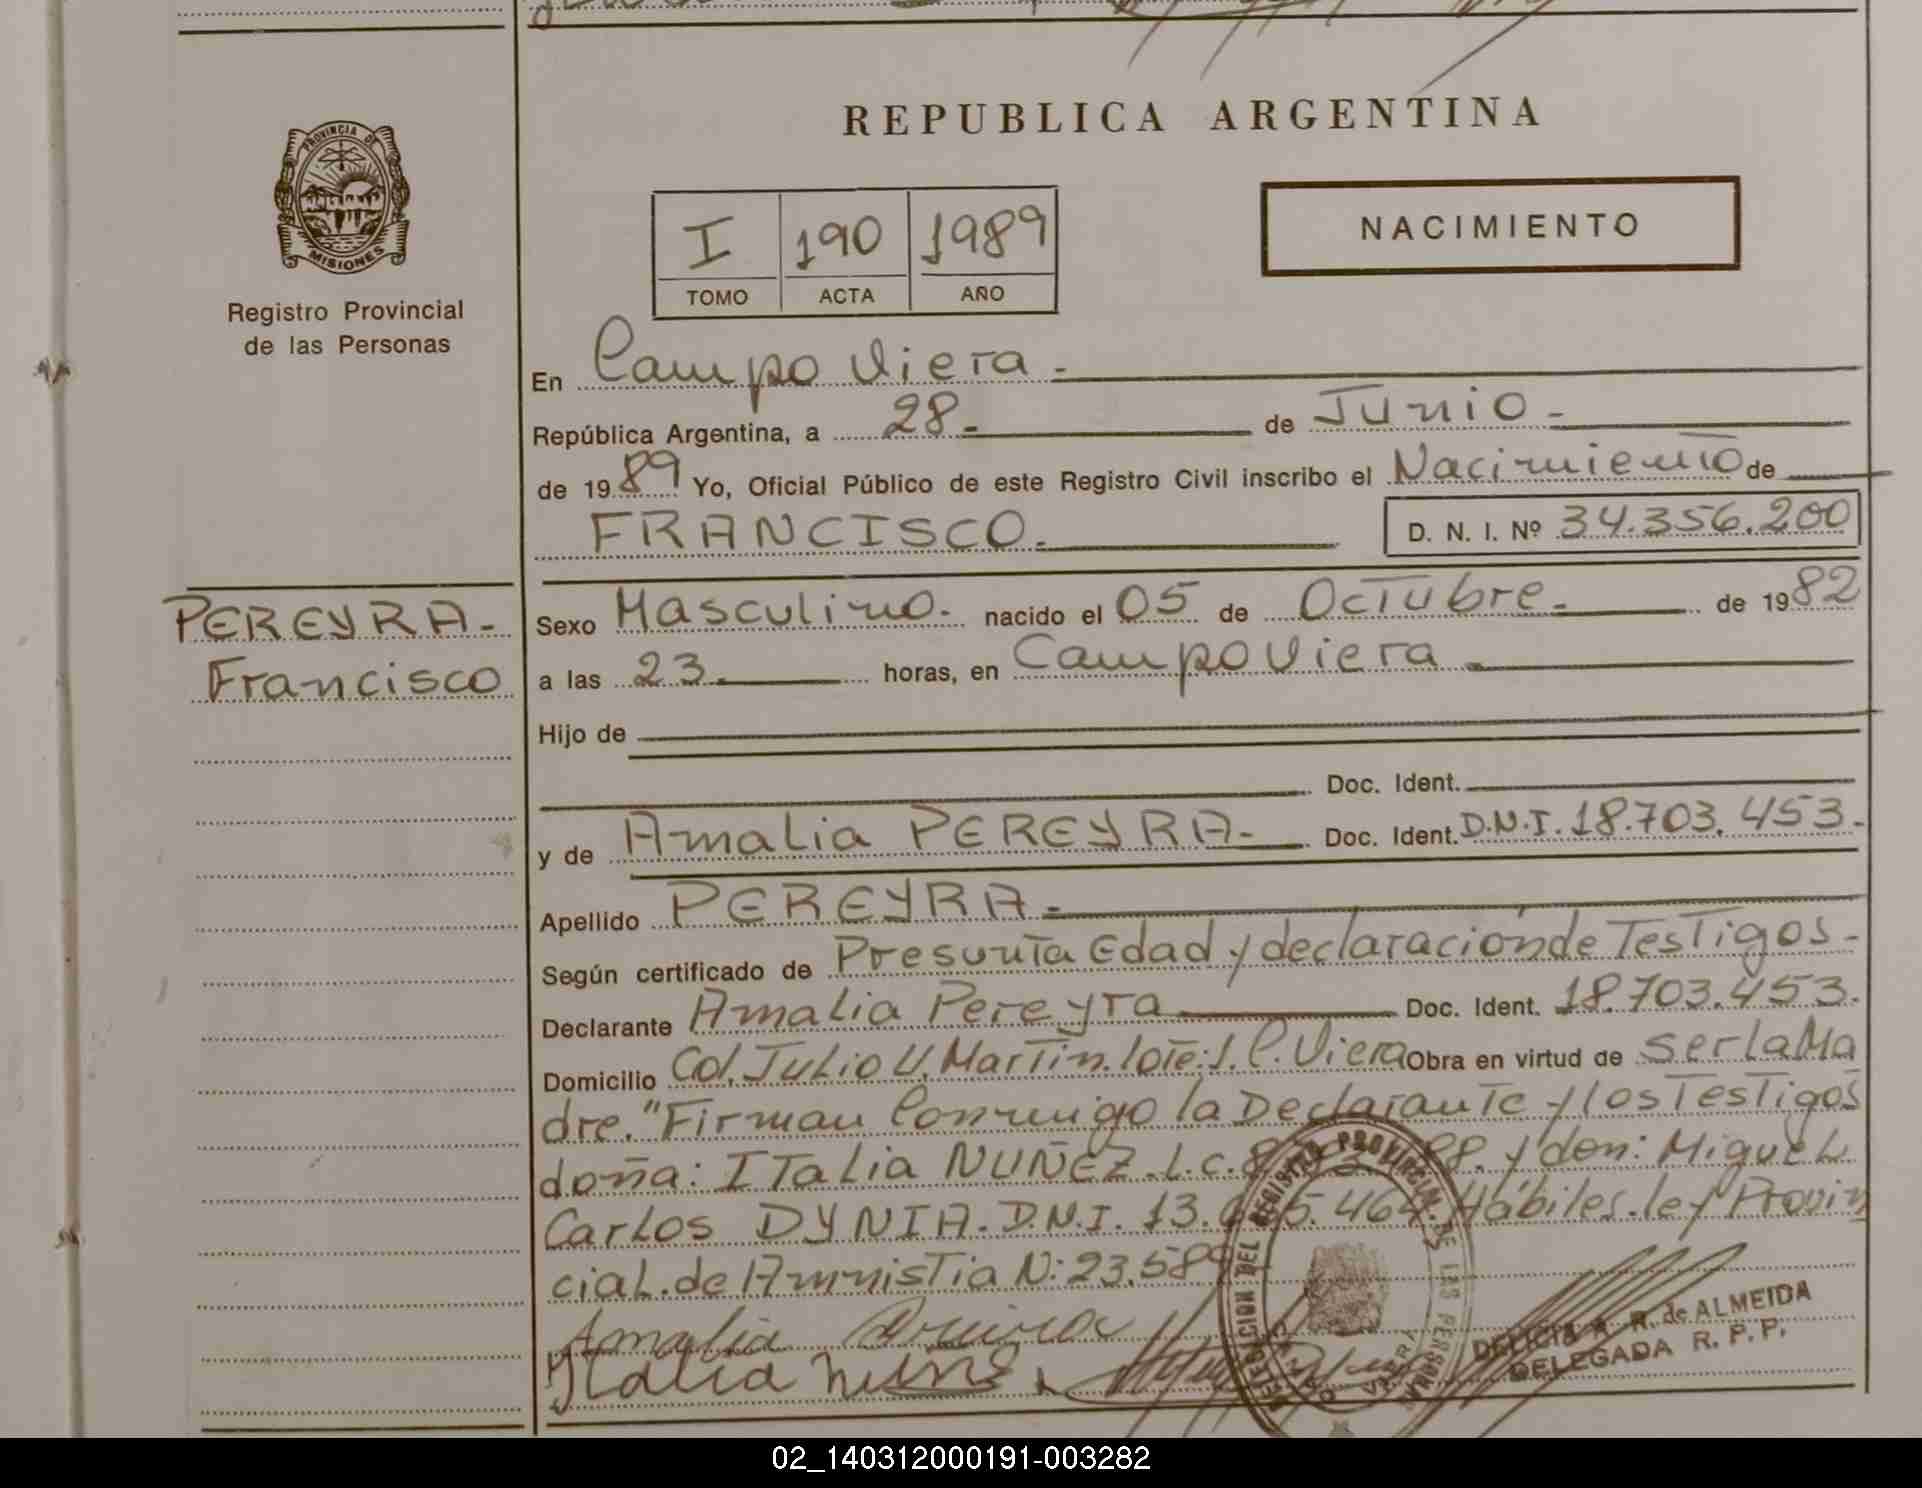 REPUBLICA ARGENTINA
PROVINCIA DE
MISIONES
Registro Provincial
de las Personas
I 190 1989
TOMO ACTA AÑO
NACIMIENTO
En Campo Viera.
República Argentina, a 28. de Junio.
de 1989 Yo, Oficial Público de este Registro Civil inscribo el Nacimiento de
FRANCISCO. D. N. I. Nº 34.356.200
PEREYRA.
Francisco
Sexo Masculino. nacido el 05 de Octubre. de 1982
a las 23. horas, en Campo Viera.
Hijo de
Doc. Ident.
y de Amalia PEREYRA. Doc. Ident. D.N.I. 18.703.453.
Apellido PEREYRA.
Según certificado de Presunta Edad y declaración de Testigos.
Declarante Amalia Pereyra Doc. Ident. 18.703.453.
Domicilio Col. Julio U. Martin. lote: 1. C. Viera Obra en virtud de ser la Ma
dre. "Firman Conmigo la Declarante y los Testigos
doña: Italia NUÑEZ. L.C. y don: Miguel
Carlos DYNIA. D.N.I. 13. Hábiles. ley Provin
cial. de Amnistia N: 23.
Amalia
Italia
DELICIA A. R. de ALMEIDA
DELEGADA R. P. P.
DELEGACION DEL REGISTRO PROVINCIAL DE LAS PERSONAS
02_140312000191-003282